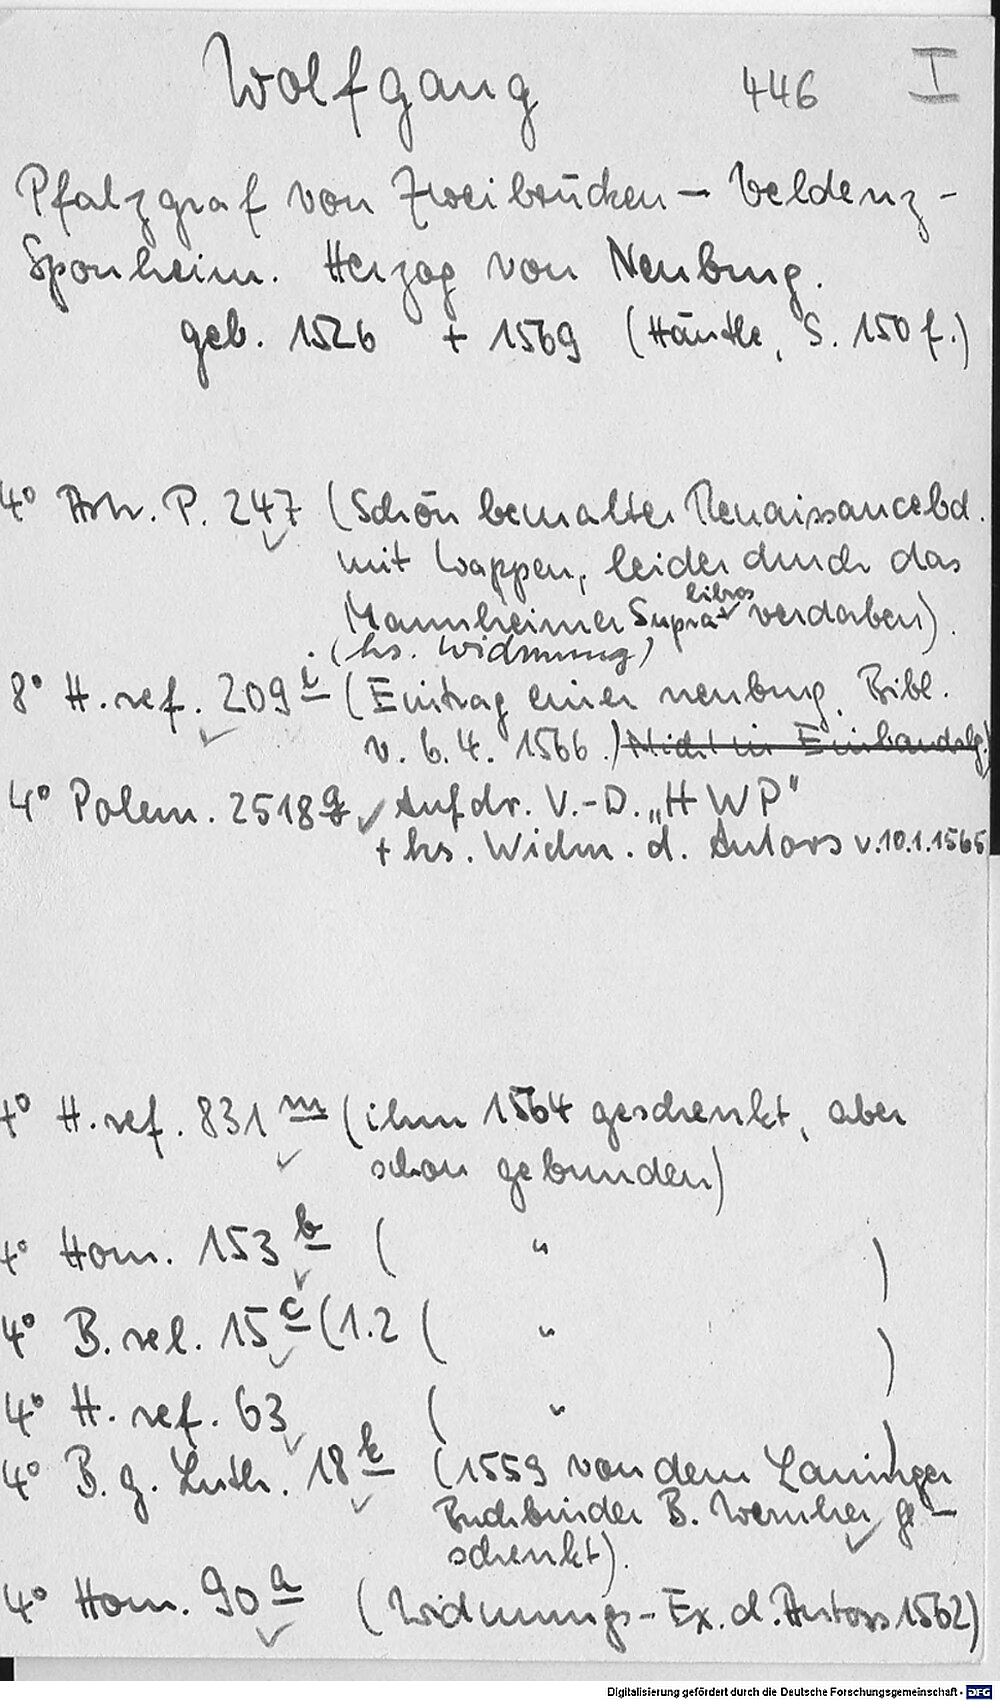 Wolfgang 446 I
Pfalzgraf von Zweibrücken - Veldenz -
Sponheim. Herzog von Neuburg.
geb. 1526 + 1569 (Häutle, S. 150 f.)
4° Astr. P. 247 (Schön bemalter Renaissancebd.
mit Wappen, leider durch das
libros
Mannheimer Supra verdorben).
(hs. Widmung)
8° H. ref. 209 i (Eintrag einer neuburg. Bibl.
v. 6.4. 1566.) Nicht in Einbandslg.)
4° Polem. 2518 g Aufdr. V.-D. "HWP"
+ hs. Widm. d. Autors v. 10.1.1565
4° H. ref. 831 m (ihm 1564 geschenkt, aber
schon gebunden)
4° Hom. 153 b ( " )
4° B. rel. 15 c (1.2 ( " )
4° H. ref. 63 ( " )
4° B. g. Luth. 18 k (1559 von dem Lauinger
Buchbinder B. Wernher ge-
schenkt).
4° Hom. 90 a (Widmungs-Ex. d. Autors 1562)
Digitalisierung gefördert durch die Deutsche Forschungsgemeinschaft - DFG